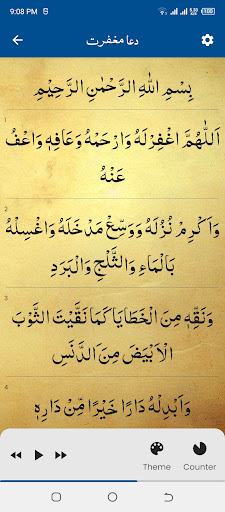 9:08 PM
دعا مغفرت
بِسْمِ اللّٰهِ الرَّحْمٰنِ الرَّحِيْمِ
1
اَللّٰهُمَّ اغْفِرْلَهٗ وَارْحَمْهُ وَعَافِهٖ وَاعْفُ
عَنْهُ
2
وَاَكْرِمْ نُزُلَهٗ وَوَسِّعْ مَدْخَلَهٗ وَاغْسِلْهُ
بِالْمَاءِ وَالثَّلْجِ وَالْبَرَدِ
3
وَنَقِّهٖ مِنَ الْخَطَايَا كَمَا نَقَّيْتَ الثَّوْبَ
الْاَبْيَضَ مِنَ الدَّنَسِ
4
وَاَبْدِلْهُ دَارًا خَيْرًا مِّنْ دَارِهٖ
Theme
Counter